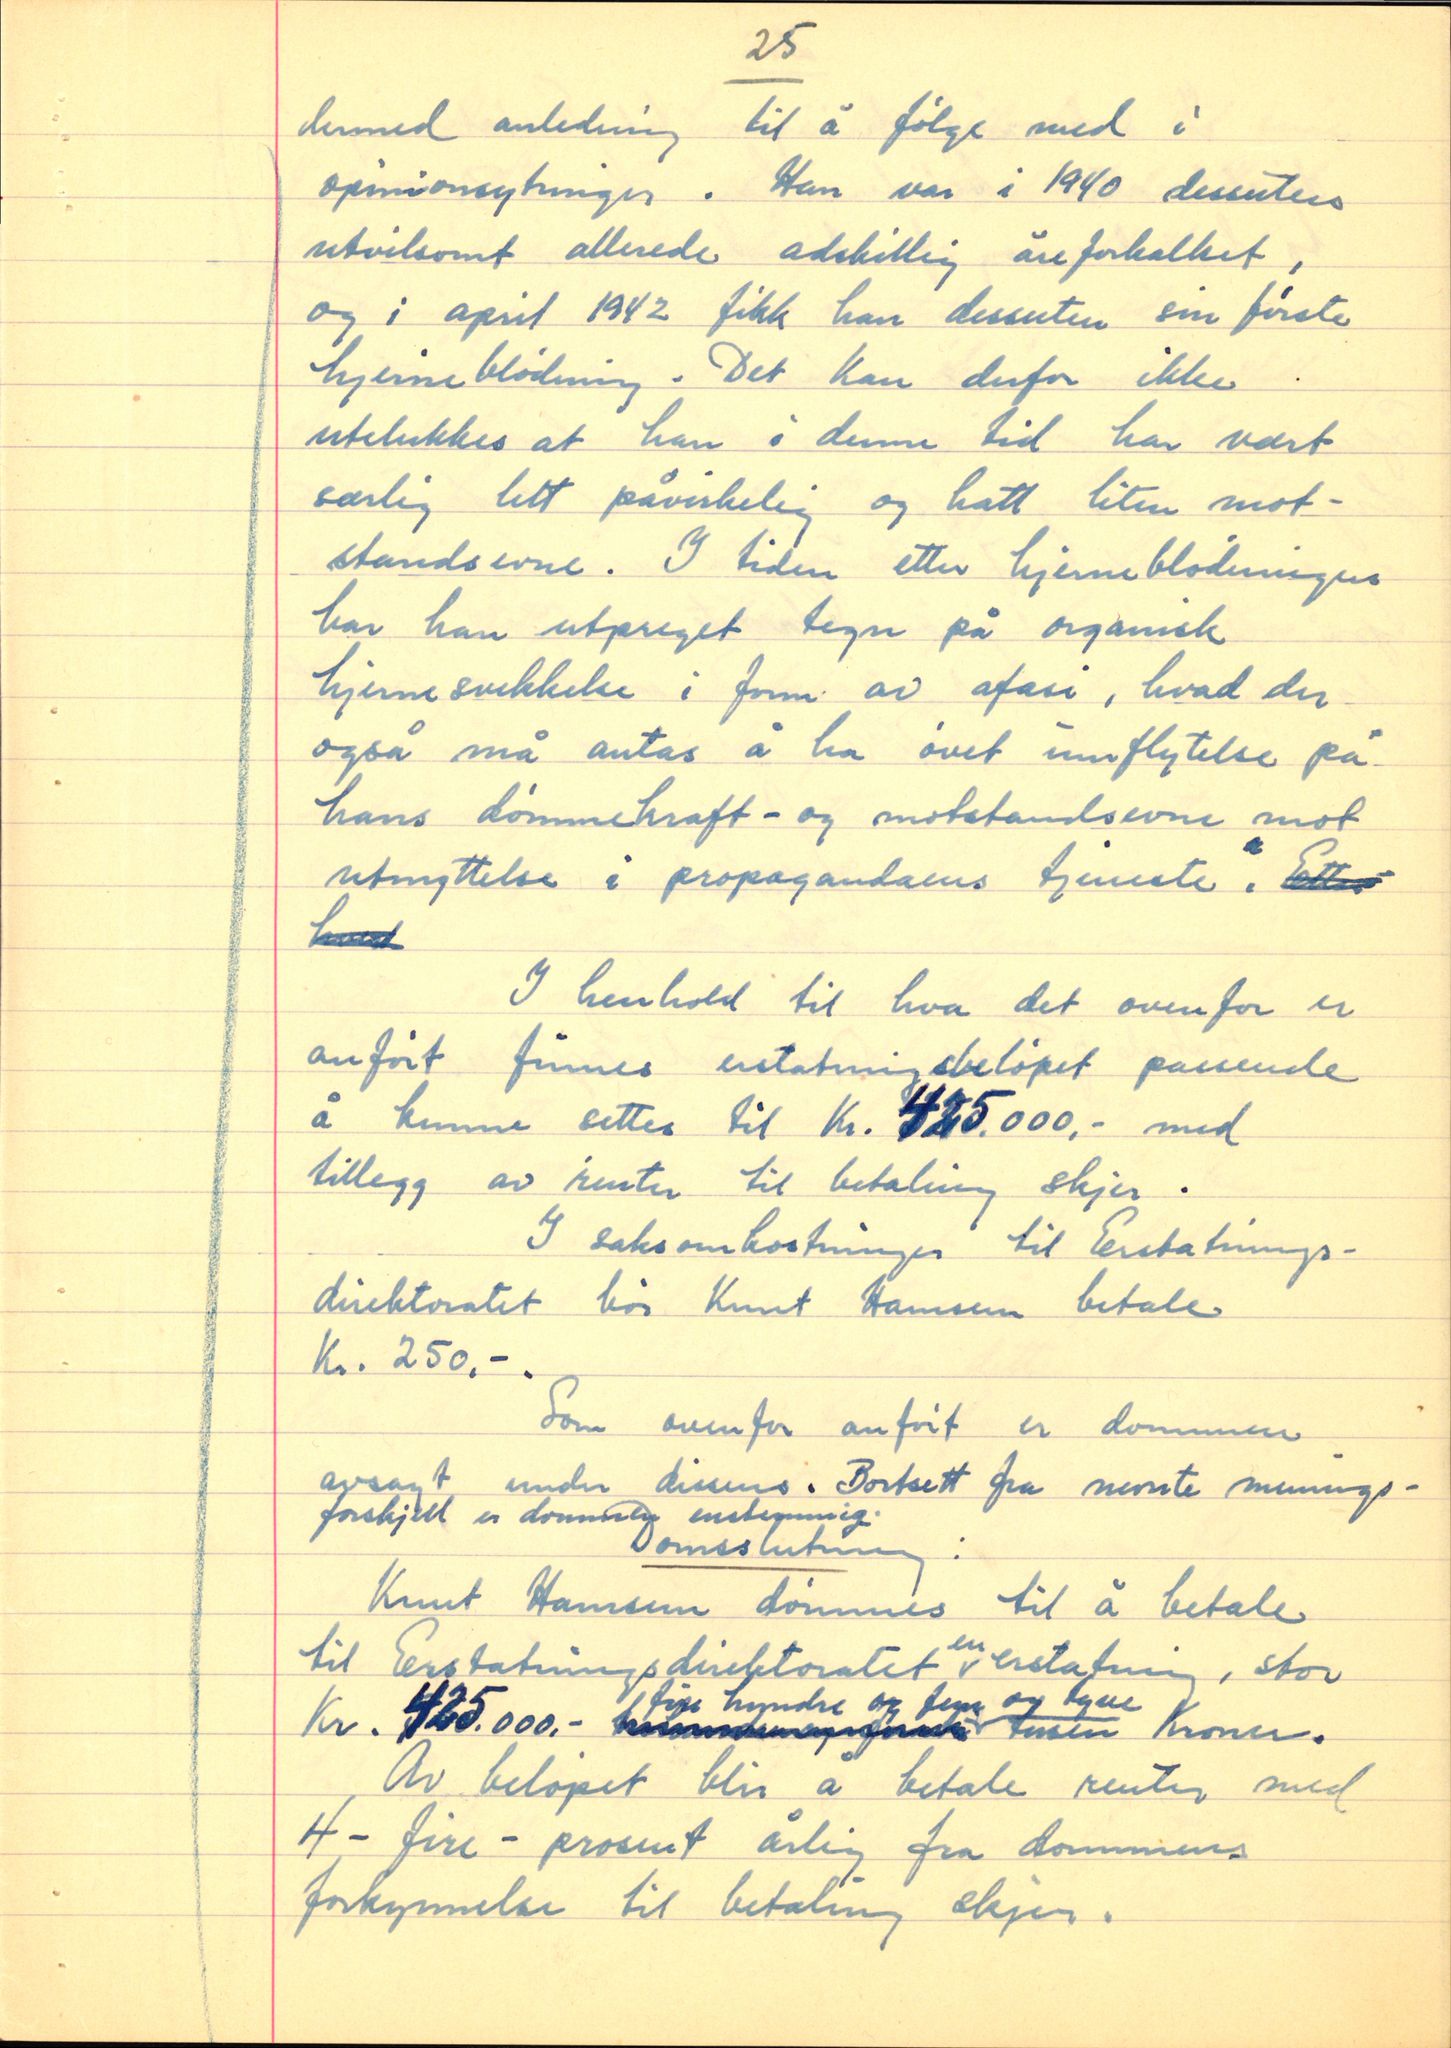 25
dermed anledning til å følge med i
opinionsytringer. Han var i 1940 dessuten
utvilsomt allerede adskillig åreforkalket,
og i april 1942 fikk han dessuten sin første
hjerneblødning. Det kan derfor ikke
utelukkes at han i denne tid har vært
særlig lett påvirkelig og hatt liten mot-
standsevne. I tiden etter hjerneblødningen
har han utpreget tegn på organisk
hjernesvekkelse i form av afasi, hvad der
også må antas å ha øvet innflytelse på
hans dømmekraft- og motstandsevne mot
utnyttelse i propagandaens tjeneste. Etter
hvad
I henhold til hva det ovenfor er
anført finnes erstatningsbeløpet passende
å kunne settes til Kr. 425.000,- med
tillegg av renter til betaling skjer.
I saksomkostninger til Erstatnings-
direktoratet bør Knut Hamsun betale
Kr. 250,-.
Som ovenfor anført er dommen
avsagt under dissens. Bortsett fra nevnte menings-
forskjell er dommen enstemmig.
Domsslutning:
Knut Hamsun dømmes til å betale
til Erstatningsdirektoratet en erstatning, stor
Kr. 425.000,- fire hundre og fem og tyve tusen Kroner.
Av beløpet blir å betale renter med
4 - fire - prosent årlig fra dommens
forkynnelse til betaling skjer.